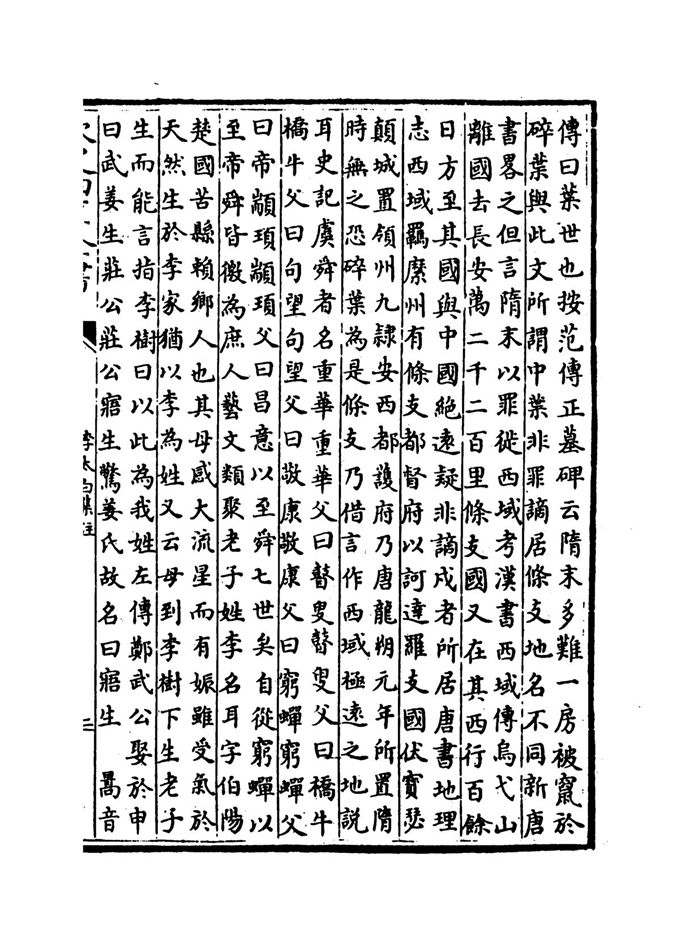 傳曰葉世也按范傳正墓碑云隋末多難一房被竄於
碎葉與此文所謂中葉非罪謫居條支地名不同新唐
書畧之但言隋末以罪徙西域考漢書西域傳烏弋山
離國去長安萬二千二百里條支國又在其西行百餘
日方至其國與中國絶逺疑非謫戍者所居唐書地理
志西域羈縻州有條支都督府以訶達羅支國伏寳瑟
顛城置領州九隷安西都護府乃唐龍朔元年所置隋
時無之恐碎葉為是條支乃借言作西域極逺之地説
耳史記虞舜者名重華重華父曰瞽叟瞽叟父曰橋牛
橋牛父曰句望句望父曰敬康敬康父曰窮蟬窮蟬父
曰帝顓頊顓頊父曰昌意以至舜七世矣自從窮蟬以
至帝舜皆微為庶人藝文類聚老子姓李名耳字伯陽
楚國苦縣賴鄉人也其母感大流星而有娠雖受氣於
天然生於李家猶以李為姓又云母到李樹下生老子
生而能言指李樹曰以此為我姓左傳鄭武公娶於申
曰武姜生莊公莊公寤生驚姜氏故名曰寤生 暠音
李太白集注
三